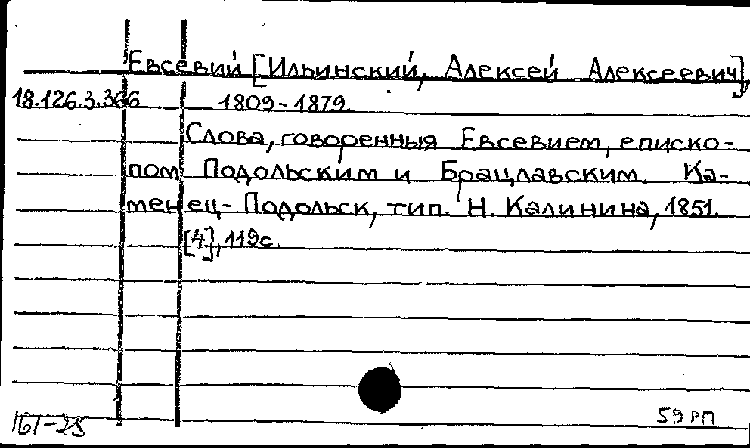 Евсевий [Ильинский, Алексей Алексеевич],
18.126.3.366 1809-1879.
Слова, говоренныя Евсевием, еписко-
пом Подольским и Брацлавским. Ка-
менец-Подольск, тип. Н. Калинина, 1851.
[4], 119с.
161-25 59 РП